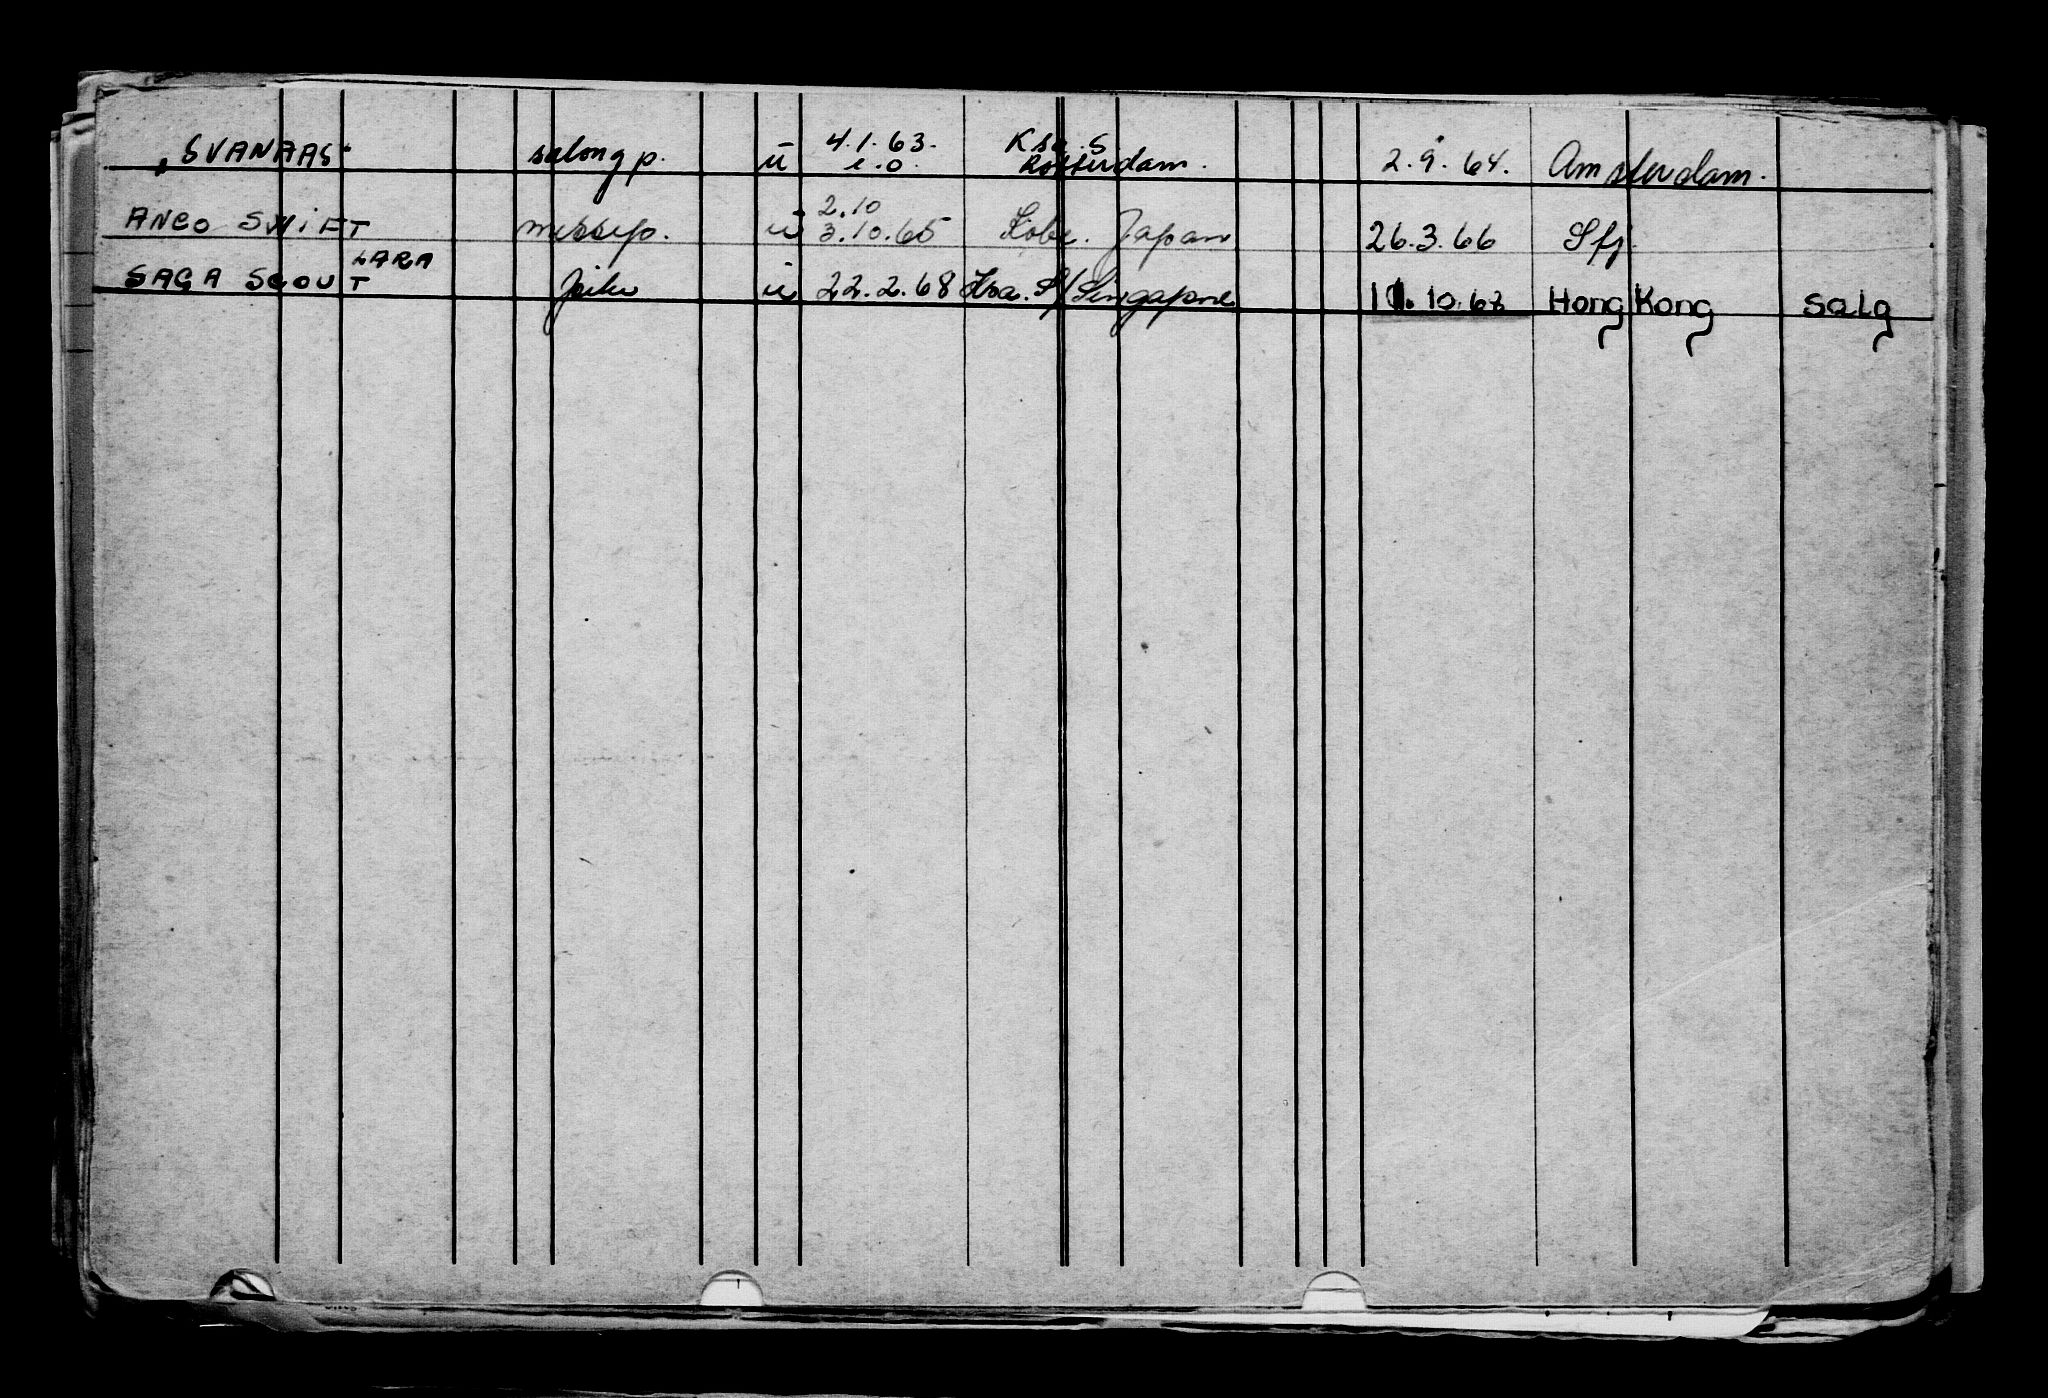 "SVANAAS" salong p. u 4.1.63. Ksa. S 2.9.64. Amsterdam.
e.o. Rotterdam.
ANCO SWIFT messep. u 2.10 3.10.65 Kobe. Japan 26.3.66 Sfj.
LARA
SAGA SCOUT u 22.2.68 S/Singapore 11.10.68 Hong Kong salg